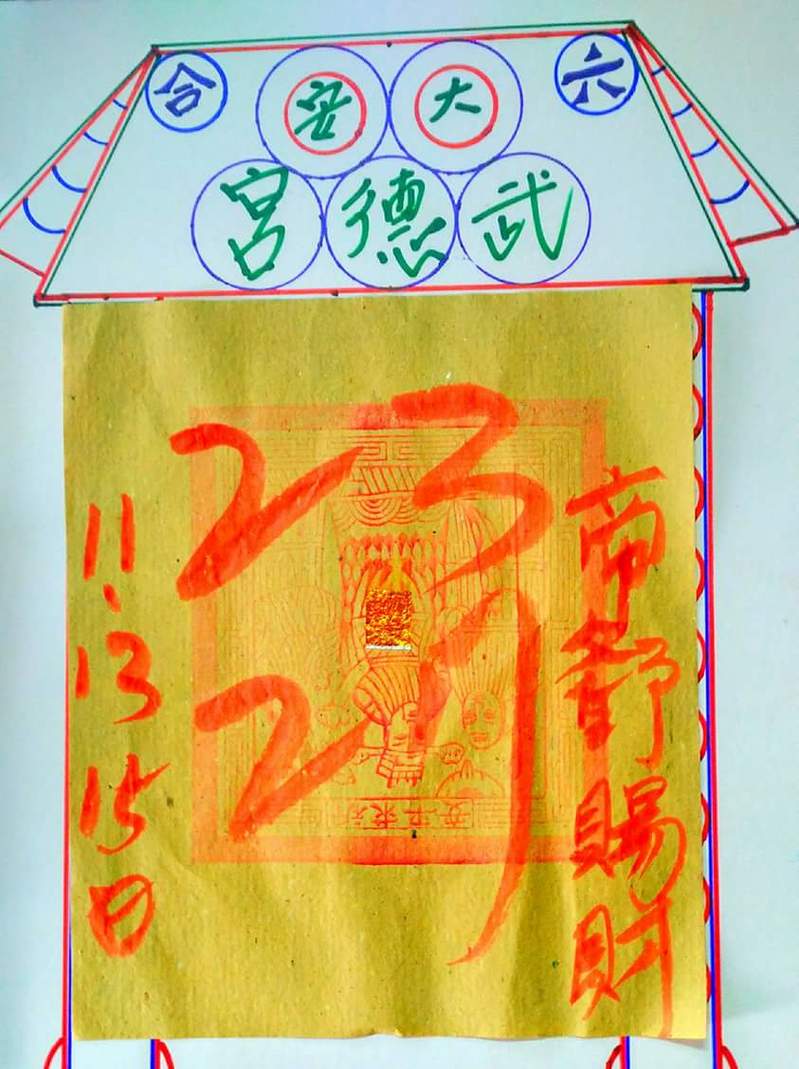 六大安合
武德宮
帝爺賜財
23
27
11.13
15日